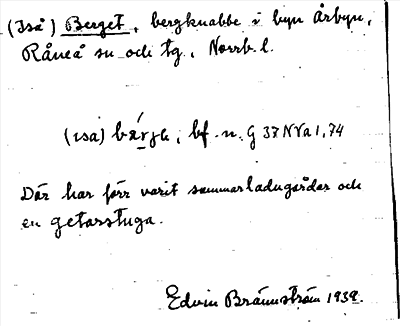 (Iså) Berget, bergknabbe i byn Årbyn,
Råneå sn och tg, Norrb. l.
(ɩsa) bárjə, bf. n. G 37 N Va 1, 74
Där har förr varit sommarladugårdar och
en getarstuga.
Edvin Brännström 1939.